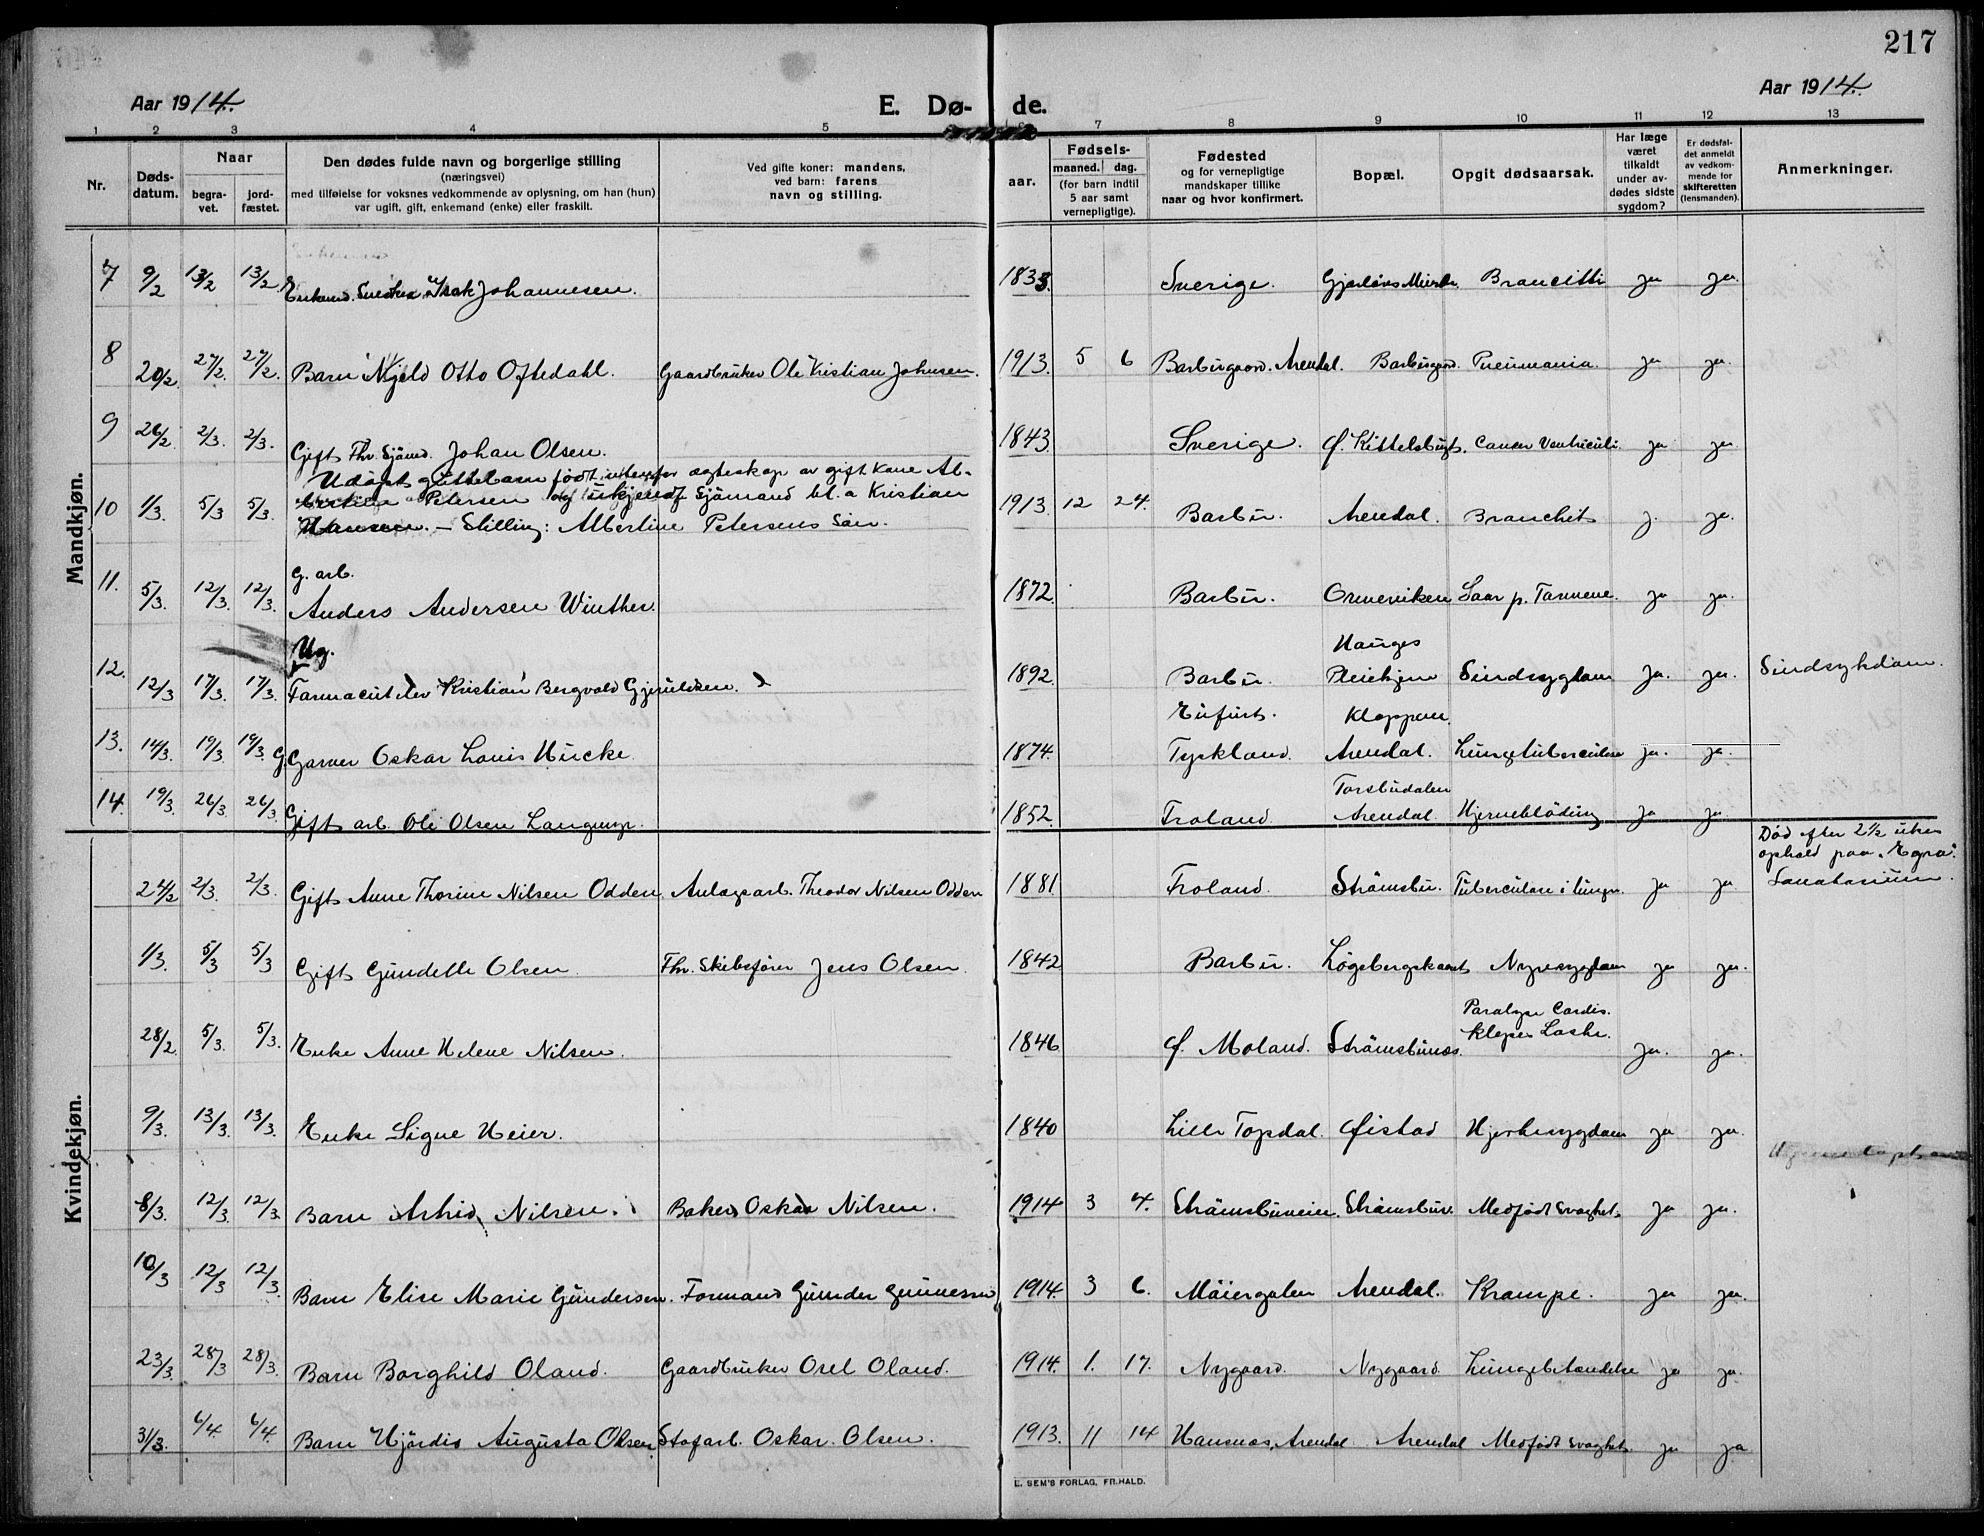 217
Aar 1914.
E. Dø-
de.
Aar 1914.
1 2 3 4 5 7 8 9 10 11 12 13
Nr.
Døds-
datum.
Naar
begra-
vet.
jord-
fæstet.
Den dødes fulde navn og borgerlige stilling
(næringsvei)
med tilføielse for voksnes vedkommende av oplysning, om han (hun)
var ugift, gift, enkemand (enke) eller fraskilt.
Ved gifte koner: mandens,
ved barn: farens
navn og stilling.
aar.
Fødsels-
maaned. dag.
(for barn indtil
5 aar samt
vernepligtige).
Fødested
og for vernepligtige
mandskaper tillike
naar og hvor konfirmert.
Bopæl.
Opgit dødsaarsak.
Har læge
været
tilkaldt
under av-
dødes sidste
sygdom?
Er dødsfal-
det anmeldt
av vedkom-
mende for
skifteretten
(lensmanden).
Anmerkninger.
Mandkjøn.
7 9/2 13/2 13/2 Enkemd. Isak Johannesen. 1833. Sverige. ja ja.
8 20/2 27/2. 27/2. Barn Njeld Otto Oftedahl. Gaardbruker Ole Kristian Johnsen. 1913. 5 6 Barbugaard. Arendal. Barbugaard. Pneumonia. ja ja.
9 26/2 2/3. 2/3. Gift Fhv. Sjømd. Johan Olsen. 1843. Sverige. Ø. Kittelsbugt. Cancer Ventriculi. ja ja.
Udøpt guttebarn født utenfor ægteskap av gift kone Al-
10 1/3. 5/3 5/3. bertine Petersen og Sjømand bl. a Kristian 1913. 12 24. Barbu. Arendal. Bronchit j. ja.
Hansen. – Stilling: Albertine Petersens Søn.
G. arb.
11. 5/3. 12/3. 12/3. Anders Andersen Winther. 1872. Barbu. Ormeviken Saar p. Tarmene. ja ja.
Ug. Hauges
12. 12/3 17/3. 17/3. Farmaceut elev Kristian Bergvald Gjeruldsen. 1892. Barbu. Pleiehjem Sindsygdom Ja. ja. Sindsykdom.
Erfurt. Kloppene.
13. 14/3. 19/3. 19/3. G. Garver Oskar Louis Hucke. 1874. Tyskland. Arendal. Lungetuberculose ja. ja.
Torsbudalen
14. 19/3. 26/3. 26/3. Gift arb. Ole Olsen Langemyr. 1852. Froland. Arendal. Hjerneblødning ja ja.
Kvindekjøn.
Død efter 2½ ukes
ophold paa "Egra"
24/2 2/3. 2/3. Gift Anne Thorine Nilsen Odden. Anlægsarb. Theodor Nilsen Odden 1881. Froland. Strømsbu. Tuberculose i lunger. ja ja. Sanatorium.
1/3. 5/3 5/3 Gift Gundelle Olsen. Fhv. Skibsfører Jens Olsen. 1842 Barbu. Løgebergskaaret Nyresygdom ja ja.
Paralyse Cordis.
28/2. 5/3. 5/3. Enke Anne Helene Nilsen. 1846. Ø. Moland. Strømsbunæs. ja. ja.
9/3. 13/3. 13/3. Enke Signe Heier. 1840 Lille Topdal. Øistad Hjertesygdom ja ja.
8/3. 12/3. 12/3. Barn Asbid Nilsen. Baker Oskar Nilsen. 1914 3 4. Strømsbuveien. Strømsbu. Medfødt Svaghet. ja ja.
10/3 12/3 12/3. Barn Elise Marie Gundersen. Formand Gunder Gunnesen 1914. 3 6. Møiergaten Arendal. Krampe. ja ja.
23/3. 28/3 28/3. Barn Borghild Oland. Gaardbruker Osel Oland. 1914. 1. 17. Nygaard. Nygaard. Lungebetændelse ja ja.
31/3. 6/4. 6/4. Barn Hjørdis Augusta Olsen Stofarb. Oskar Olsen. 1913. 11 14 Hansnæs, Arendal. Arendal Medfødt Svaghet. ja ja
E. SEM'S FORLAG, FR.HALD.